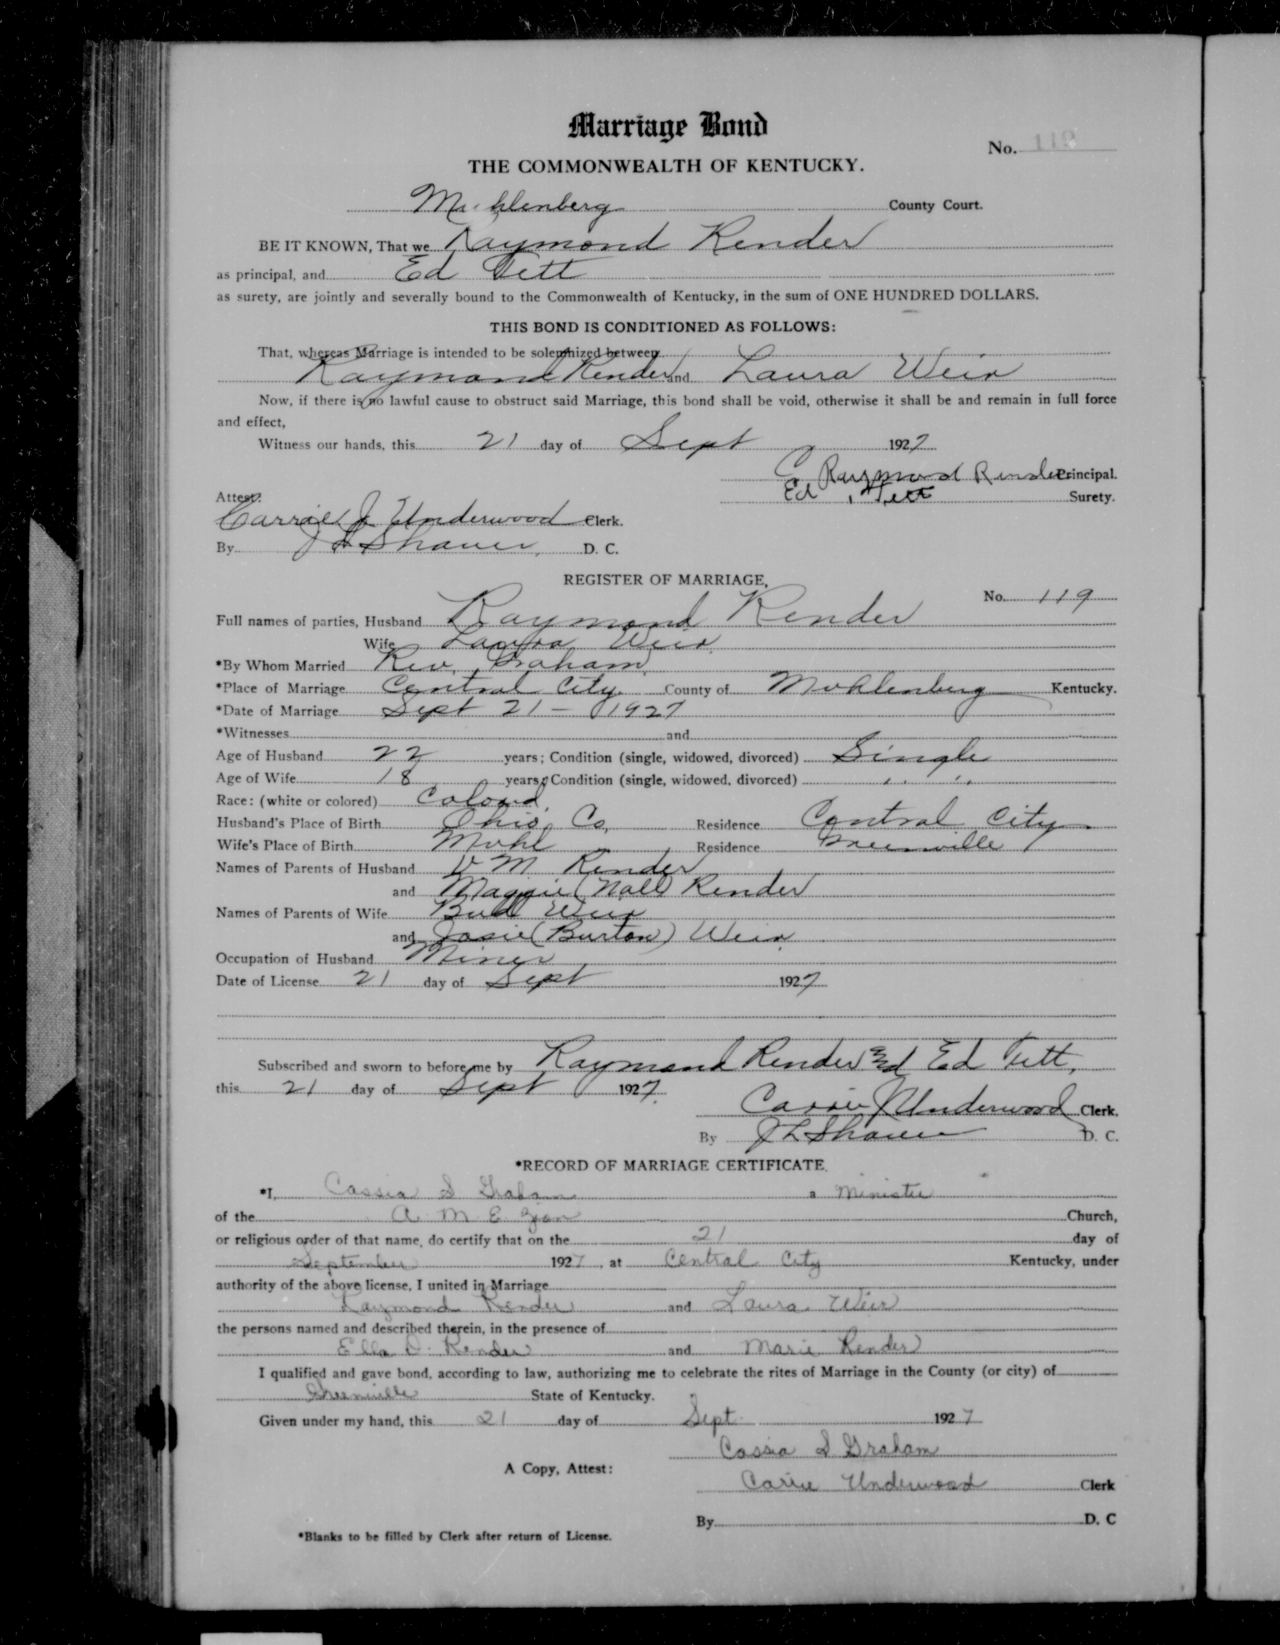 Marriage Bond
No. 119
THE COMMONWEALTH OF KENTUCKY.
Muhlenberg County Court.
BE IT KNOWN, That we Raymond Render
as principal, and Ed Tett
as surety, are jointly and severally bound to the Commonwealth of Kentucky, in the sum of ONE HUNDRED DOLLARS.
THIS BOND IS CONDITIONED AS FOLLOWS:
That, whereas Marriage is intended to be solemnized between
Raymond Render and Laura Weir
Now, if there is no lawful cause to obstruct said Marriage, this bond shall be void, otherwise it shall be and remain in full force
and effect,
Witness our hands, this 21 day of Sept 1927
Raymond Render Principal.
Ed Tett Surety.
Attest:
Carrie J Underwood Clerk.
By J L Shaver, D. C.
REGISTER OF MARRIAGE,
No. 119
Full names of parties, Husband Raymond Render
Wife Laura Weir.
*By Whom Married Rev. Graham
*Place of Marriage Central City County of Muhlenberg Kentucky.
*Date of Marriage Sept 21 - 1927
*Witnesses and
Age of Husband 22 years; Condition (single, widowed, divorced) Single
Age of Wife 18 years; Condition (single, widowed, divorced) " "
Race: (white or colored) Colored
Husband's Place of Birth Ohio Co, Residence Central City
Wife's Place of Birth Muhl Residence Greenville
Names of Parents of Husband V M Render
and Maggie (Nall) Render
Names of Parents of Wife Bud Weir
and Josie (Burton) Weir
Occupation of Husband Miner
Date of License 21 day of Sept 1927
Subscribed and sworn to before me by Raymond Render and Ed Tett,
this 21 day of Sept 1927.
Carrie J Underwood Clerk.
By J L Shaver D. C.
*RECORD OF MARRIAGE CERTIFICATE.
*I, Cassia S Graham a Minister
of the A M E Zion Church,
or religious order of that name, do certify that on the 21 day of
September 1927, at Central City Kentucky, under
authority of the above license, I united in Marriage
Raymond Render and Laura Weir
the persons named and described therein, in the presence of
Ella D. Render and Marie Render
I qualified and gave bond, according to law, authorizing me to celebrate the rites of Marriage in the County (or city) of
Greenville State of Kentucky.
Given under my hand, this 21 day of Sept 1927
Cassia S Graham
A Copy, Attest:
Carrie Underwood Clerk
By D. C
*Blanks to be filled by Clerk after return of License.